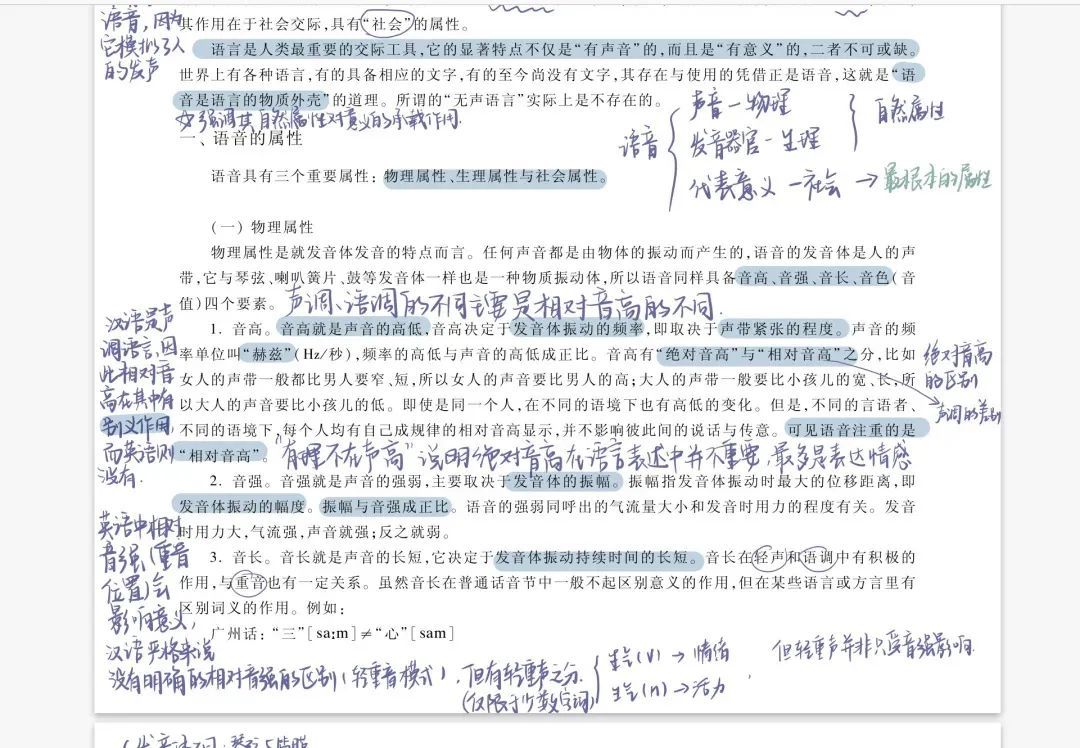 其作用在于社会交际,具有“社会”的属性。
语音,因为
它模拟了人
的发声
语言是人类最重要的交际工具,它的显著特点不仅是“有声音”的,而且是“有意义”的,二者不可或缺。
世界上有各种语言,有的具备相应的文字,有的至今尚没有文字,其存在与使用的凭借正是语音,这就是“语
音是语言的物质外壳”的道理。所谓的“无声语言”实际上是不存在的。
强调其自然属性对意义的承载作用.
语音
声音-物理
发音器官-生理
自然属性
代表意义-社会→最根本的属性
一、语音的属性
语音具有三个重要属性:物理属性、生理属性与社会属性。
(一) 物理属性
物理属性是就发音体发音的特点而言。任何声音都是由物体的振动而产生的,语音的发音体是人的声
带,它与琴弦、喇叭簧片、鼓等发音体一样也是一种物质振动体,所以语音同样具备音高、音强、音长、音色(音
值)四个要素。
声调、语调的不同主要是相对音高的不同.
1. 音高。音高就是声音的高低,音高决定于发音体振动的频率,即取决于声带紧张的程度。声音的频
率单位叫“赫兹”(Hz/秒),频率的高低与声音的高低成正比。音高有“绝对音高”与“相对音高”之分,比如
女人的声带一般都比男人要窄、短,所以女人的声音要比男人的高;大人的声带一般要比小孩儿的宽、长,所
以大人的声音要比小孩儿的低。即使是同一个人,在不同的语境下也有高低的变化。但是,不同的言语者、
不同的语境下,每个人均有自己成规律的相对音高显示,并不影响彼此间的说话与传意。可见语音注重的是
“相对音高”。
汉语是声
调语言,因
此相对音
高在其中有
别义作用,
而英语则
没有.
绝对音高
的区别
声调的差别
“有理不在声高”说明绝对音高在语言表述中并不重要,最多是表达情感
2. 音强。音强就是声音的强弱,主要取决于发音体的振幅。振幅指发音体振动时最大的位移距离,即
发音体振动的幅度。振幅与音强成正比。语音的强弱同呼出的气流量大小和发音时用力的程度有关。发音
时用力大,气流强,声音就强;反之就弱。
3. 音长。音长就是声音的长短,它决定于发音体振动持续时间的长短。音长在轻声和语调中有积极的
作用,与重音也有一定关系。虽然音长在普通话音节中一般不起区别意义的作用,但在某些语言或方言里有
区别词义的作用。例如:
广州话:“三”[saːm]≠“心”[sam]
英语中相对
音强(重音
位置)会
影响意义,
汉语严格来说
没有明确的相对音强的区别(轻重音模式),但有轻重声之分.
(仅限于少数字词)
生气(v)→情绪
生气(n)→活力
但轻重声并非只受音强影响.